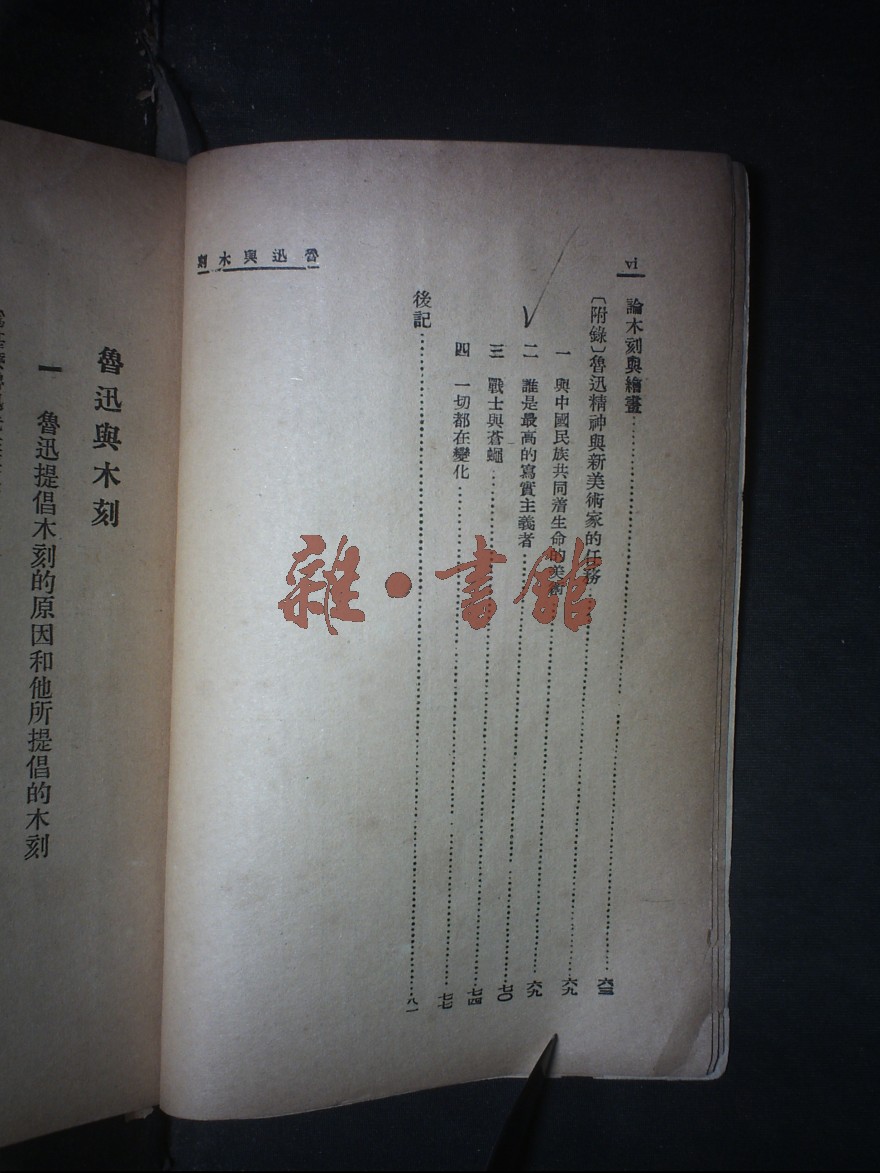 vi
魯迅與木刻
論木刻與繪畫……六三
〔附錄〕魯迅精神與新美術家的任務……六九
一 與中國民族共同着生命的美術……六九
二 誰是最高的寫實主義者……七〇
三 戰士與蒼蠅……七四
四 一切都在變化……七七
後記……八一
魯迅與木刻
一 魯迅提倡木刻的原因和他所提倡的木刻
雜·書館